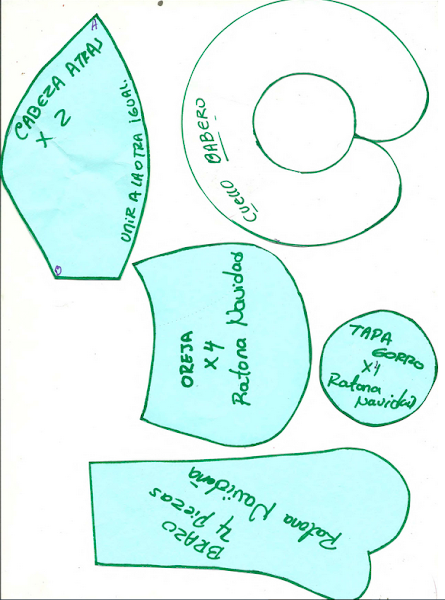 A
CABEZA ATRAS
X 2
UNIR A LA OTRA IGUAL.
B
CUELLO BABERO
OREJA
X4
Ratona Navidad
TAPA
GORRO
X4
Ratona
Navidad
BRAZO
4 piezas
Ratona Navideña